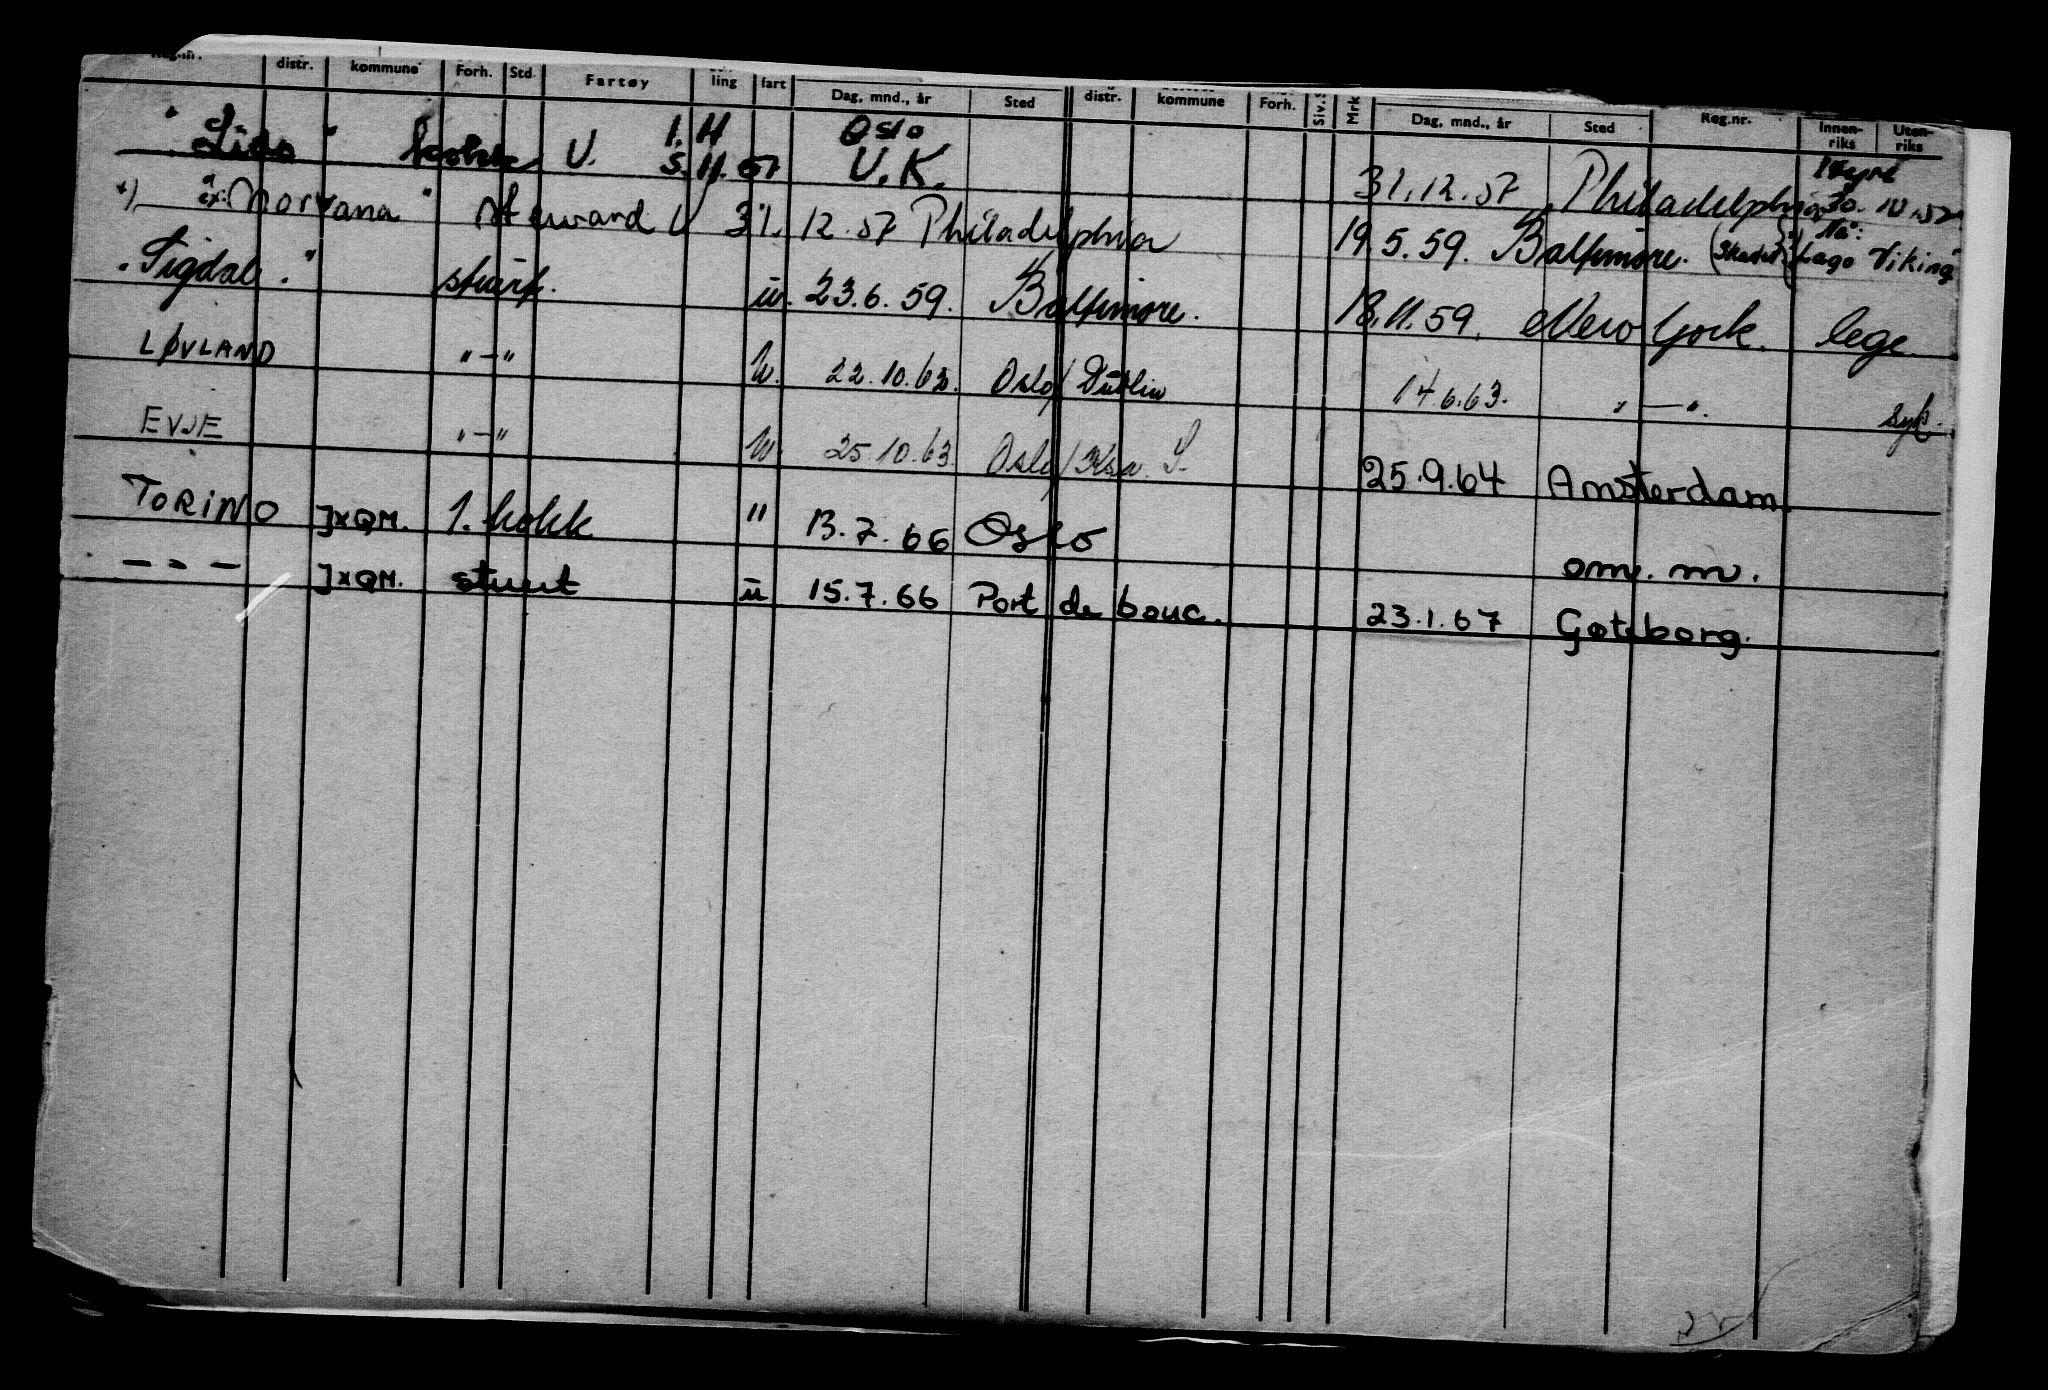 Reg.nr. distr. kommune Forh. Std. Fartøy ling fart Dag, mnd., år Sted distr. kommune Forh. Siv.s Mrk Dag, mnd., år Sted Reg.nr. Innen-riks Uten-riks
"Lido" kokk U. 1.11 Oslo
5.11.57 U.K. 31.12.57 Philadelphia 30.10.57
*) ex: "Norvana" Steward U 31.12.57 Philadelphia 19.5.59. Baltimore. (Skadet) *) Nå: Lago Viking"
"Sigdal." stuert. u. 23.6.59. Baltimore. 18.11.59. New York. lege.
LØVLAND "—" U. 22.10.62. Oslo/Dublin 14.6.63. "—". syk.
EVJE "—" U. 25.10.63. Oslo/ S. 25.9.64 Amsterdam.
TORINO JXQM. 1. kokk " 13.7.66 Oslo om. m.
— " — JXQM. stuert u 15.7.66 Port de bouc. 23.1.67 Gøteborg.